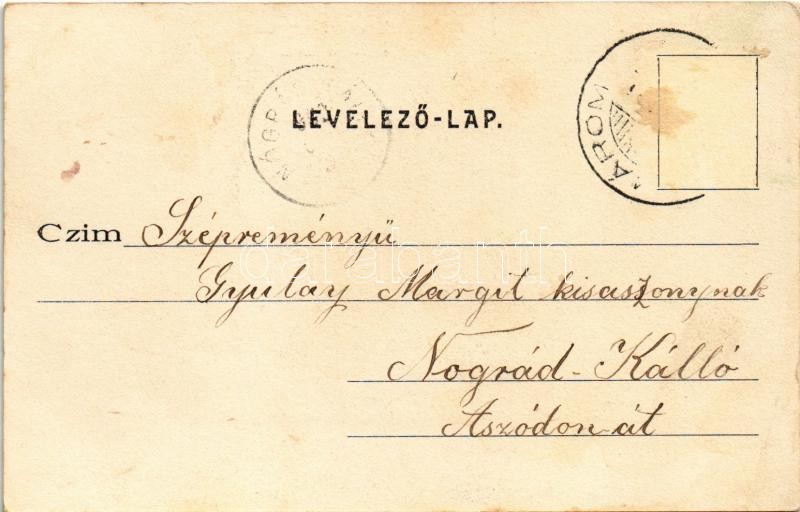 LEVELEZŐ-LAP.
ÁROM
Czim Szépreményü
Gyulay Margit kisaszonynak
Nográd-Kálló
Aszódon-át
darabanth